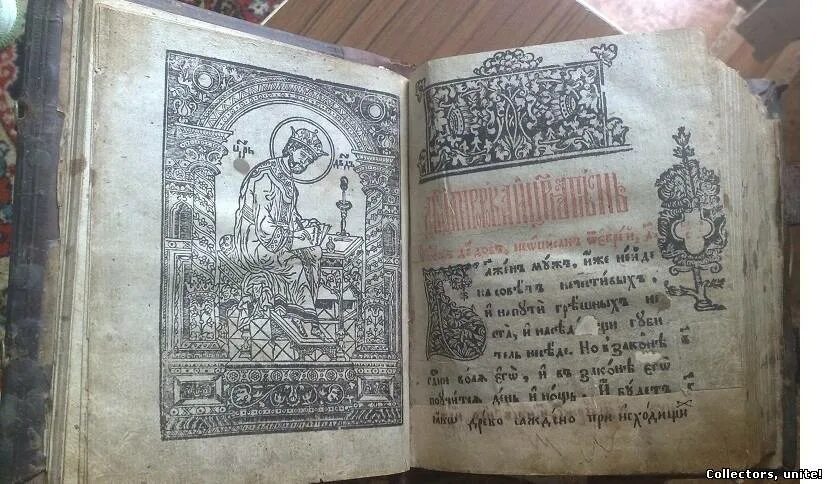 цр҃ь дв҃дъ
Блажен мужъ, иже не иде
на совѣтъ нечестивыхъ.
и на пути грѣшныхъ не
ста, и на сѣд щи губи
тель не сѣде. Но в законѣ
воля его, и въ законѣ его
поучится день и нощь. И будетъ
яко древо сажденно при исходищи
Collectors, unite!